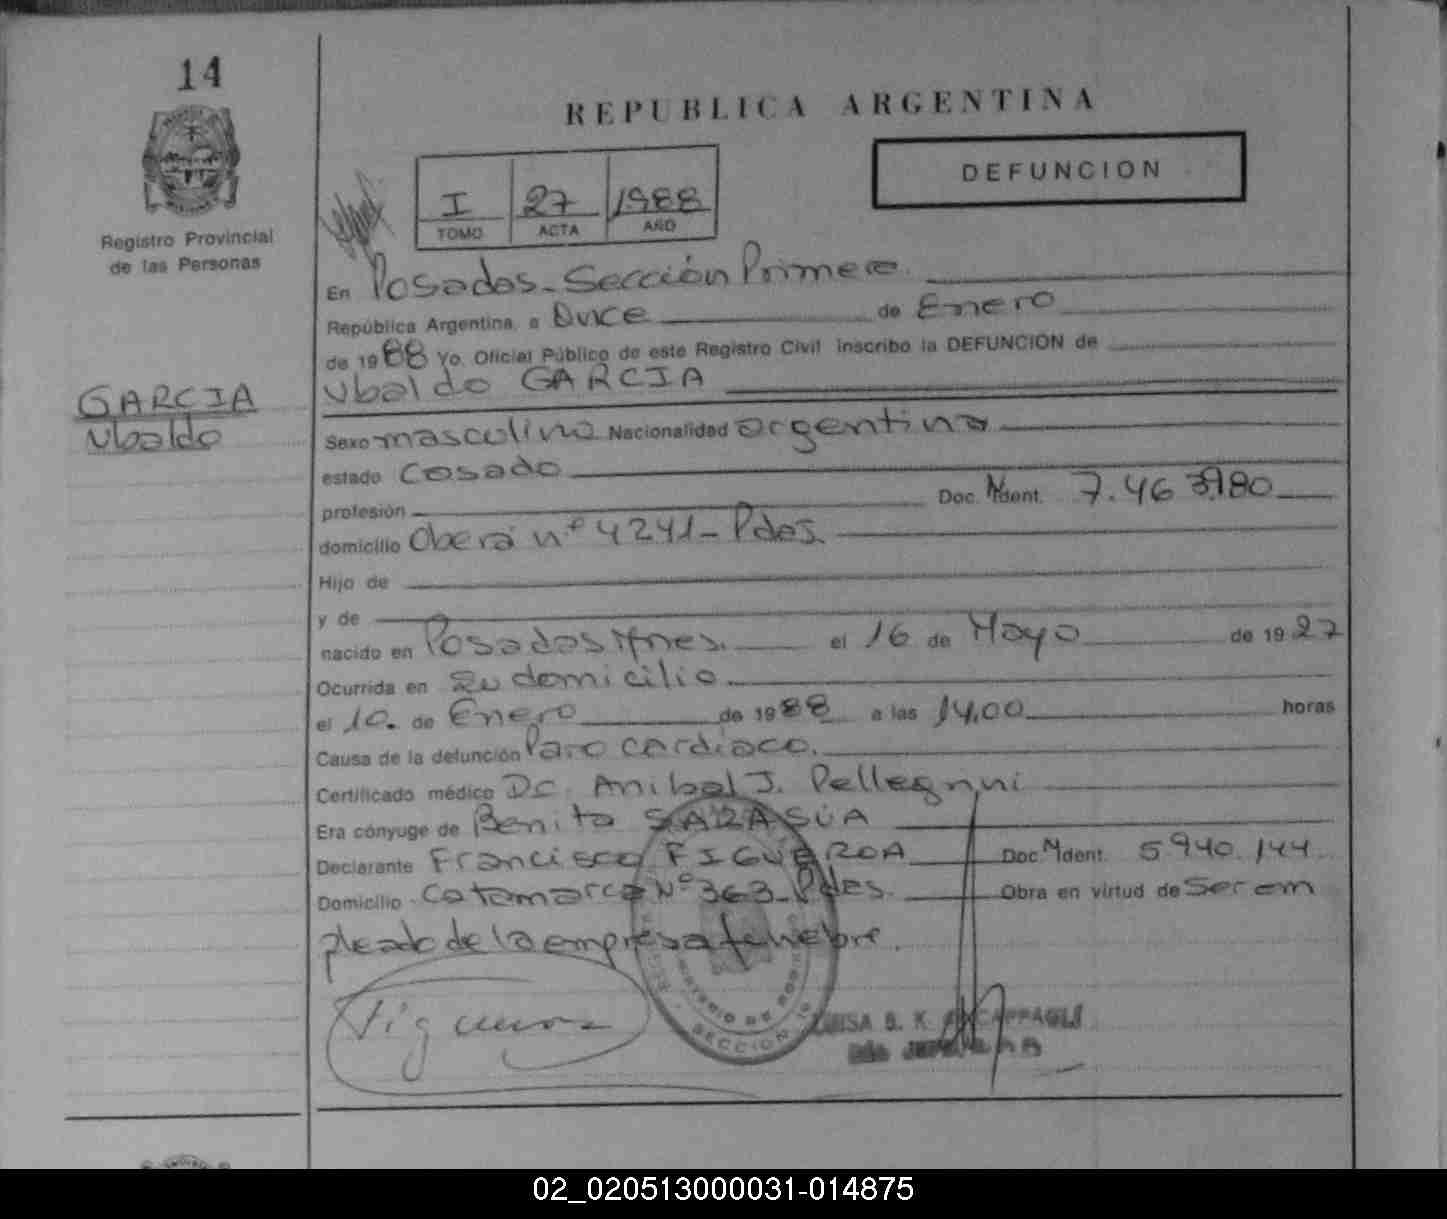 14
REPUBLICA ARGENTINA
DEFUNCION
I 27 1988
TOMO ACTA AÑO
Registro Provincial
de las Personas
En Posadas - Sección Primera
República Argentina, a Once de Enero
de 1988 Yo, Oficial Público de este Registro Civil inscribo la DEFUNCION de
Ubaldo GARCIA
GARCIA
Ubaldo
Sexo masculino Nacionalidad argentina
estado Casado
profesión Doc. Ident. 7.463.980
domicilio Oberá nº 4241 - Pdas.
Hijo de
y de
nacido en Posadas Mnes. el 16 de Mayo de 1927
Ocurrida en su domicilio
el 10. de Enero de 1988 a las 14,00 horas
Causa de la defunción Paro cardíaco.
Certificado médico Dr. Anibal J. Pellegrini
Era cónyuge de Benita SARASÚA
Declarante Francisco FIGUEROA Doc. M Ident. 5.940.144
Domicilio Catamarca Nº 363 - Pdas. Obra en virtud de Ser em
pleado de la empresa fúnebre.
Figueroa
SECCION 1a
LUISA B. K.
02_020513000031-014875